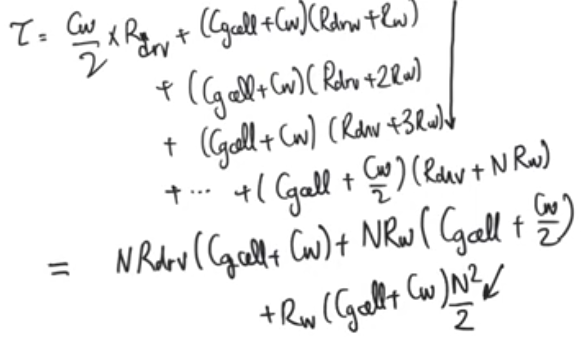 τ = Cw/2 × Rdrv + (Cgcell+Cw)(Rdrw+Rw)
+ (Cgcell+Cw)(Rdrv+2Rw)
+ (Cgcell+Cw) (Rdrv+3Rw)
+ ... + (Cgcell + Cw/2)(Rdrv + NRw)
= NRdrv(Cgcell+Cw) + NRw(Cgcell + Cw/2)
+Rw(Cgcell+Cw)N²/2